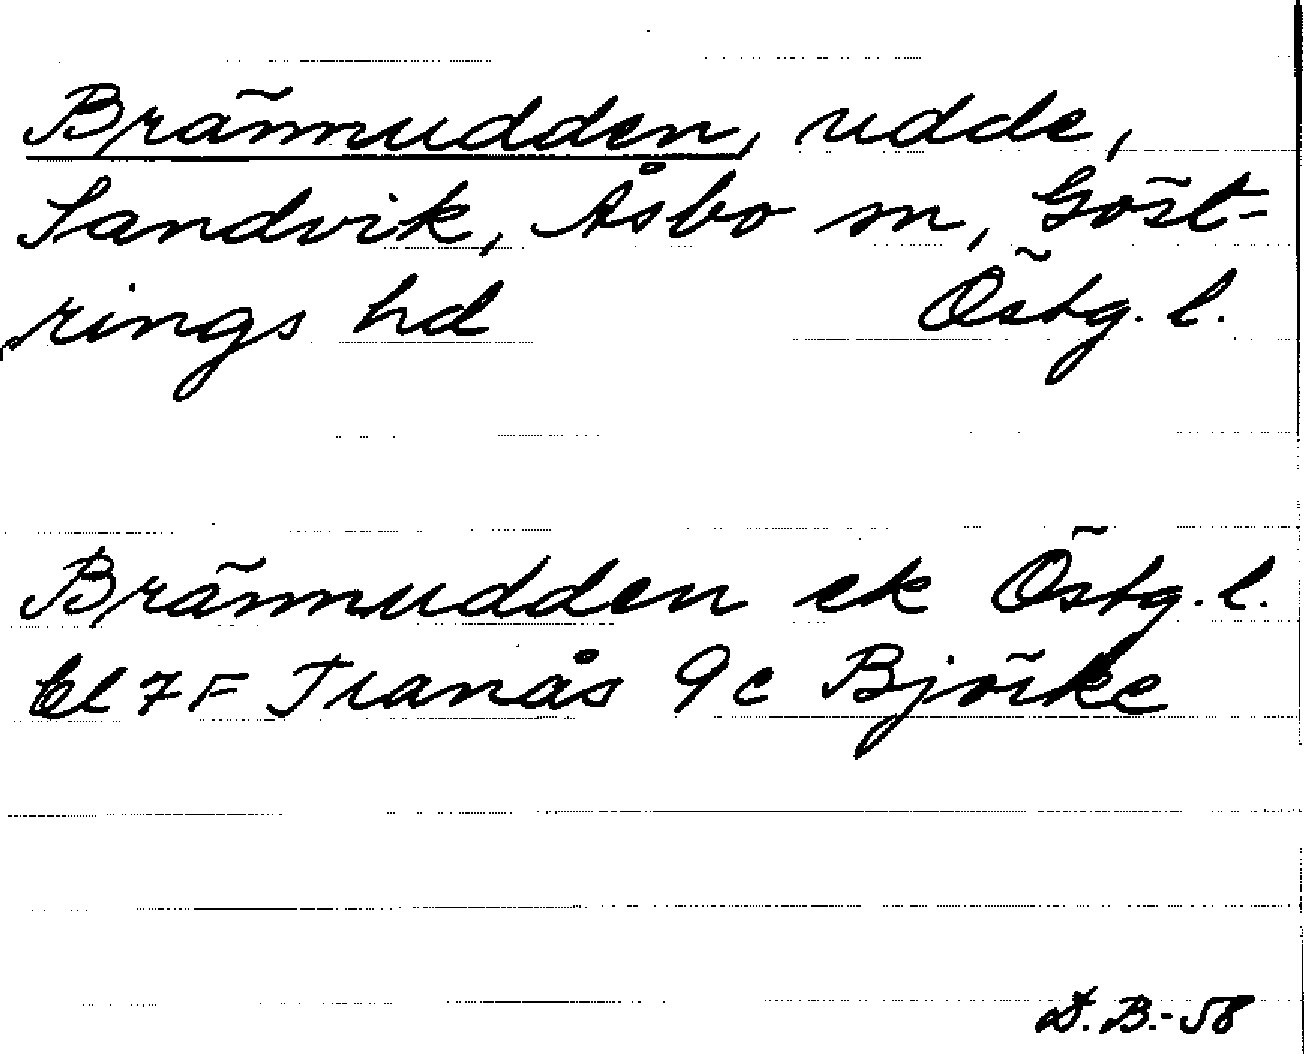 Brännudden, udde,
Sandvik, Åsbo sn, Göst-
rings hd Östg. l.
Brännudden ek Östg. l.
bl 7 F Tranås 9 c Björke
D. B.-58